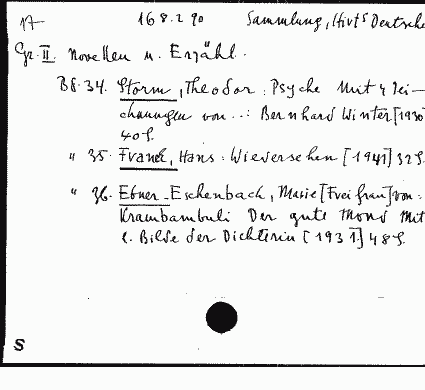 17 168.290 Sammlung, Hirts Deutsche
Gr. II. Novellen u. Erzähl.
Bd. 34. Storm, Theodor: Psyche Mit 4 Zei-
chnungen von ..: Bernhard Winter [1930
40 S.
" 35. Franck, Hans: Wiedersehen [1941] 32 S.
" 36. Ebner-Eschenbach, Marie [Freifrau] von:
Krambambuli Der gute Mond Mit
e. Bilde der Dichterin [1931.] 48 S.
S